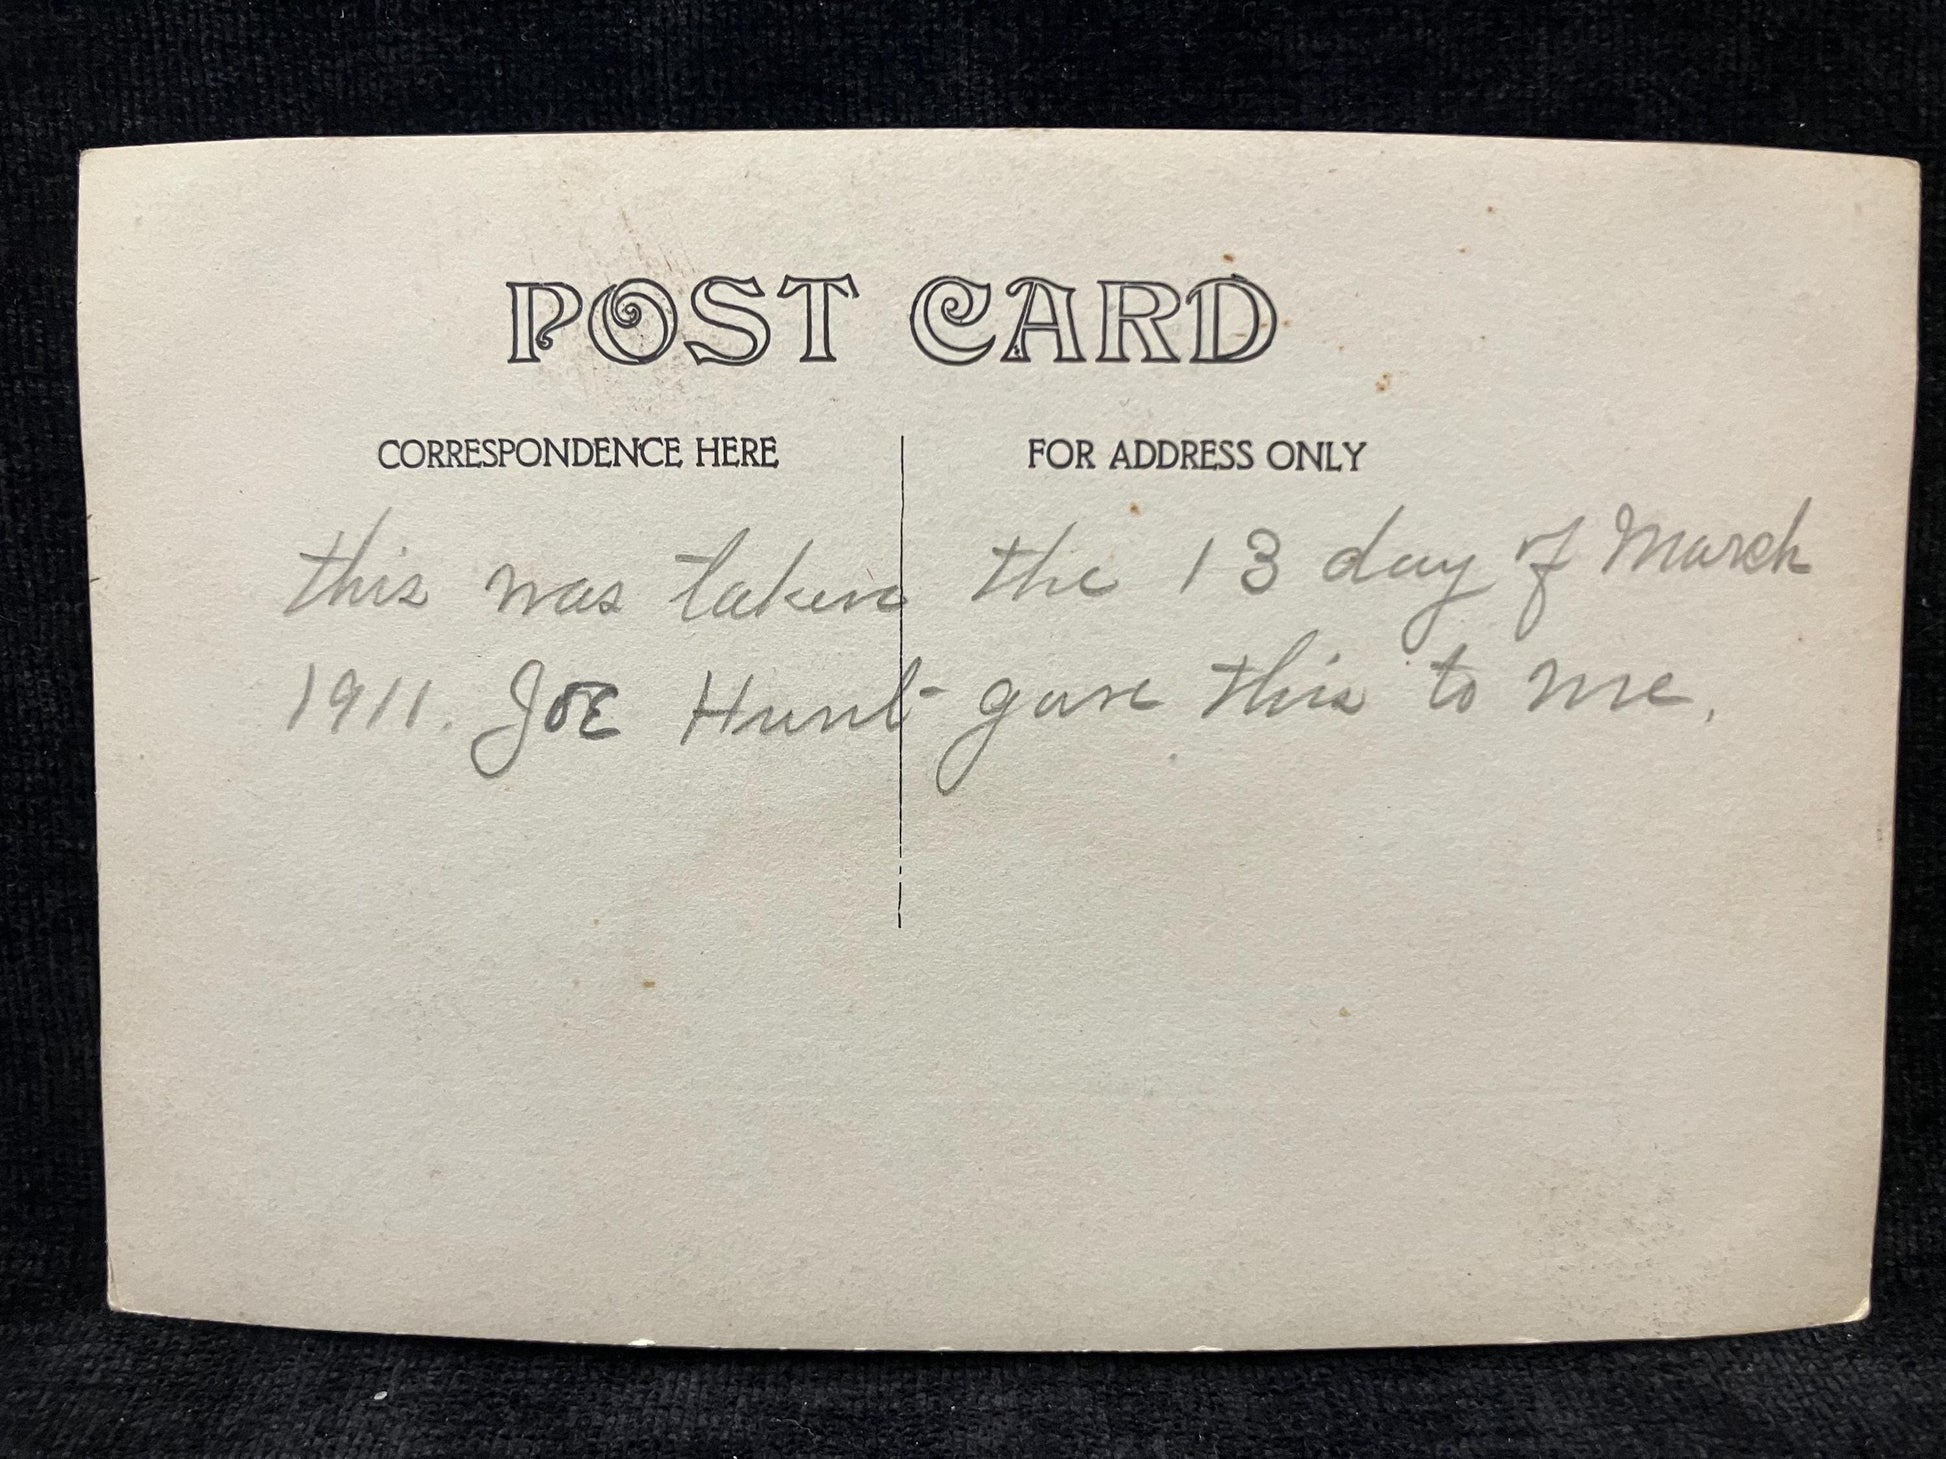 POST CARD
CORRESPONDENCE HERE
FOR ADDRESS ONLY
this was taken the 13 day of March
1911. JOE Hunt gave this to me.